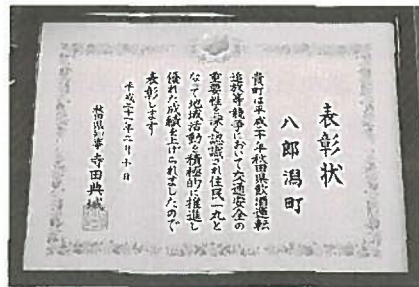 表彰状
八郎潟町
貴町は平成二十年秋田県飲酒運転
追放等競争において交通安全の
重要性を深く認識され住民一丸と
なって地域活動を積極的に推進し
優れた成績を上げられましたので
表彰します
平成二十一年二月十日
秋田県知事 寺田典城